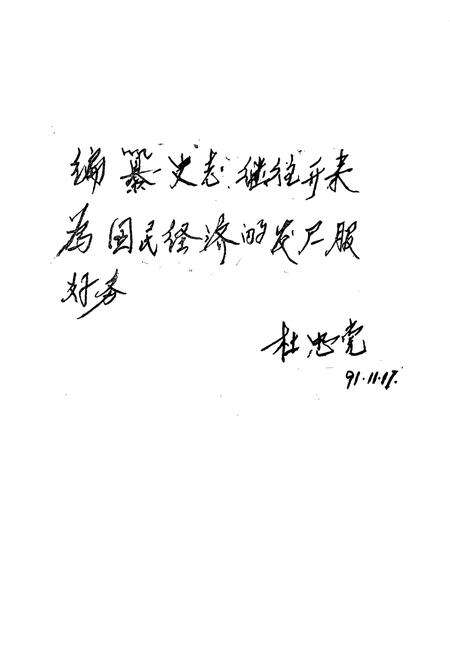 编纂史志继往开来
为国民经济的发尸服
好务
杜忠党
91.11.17.